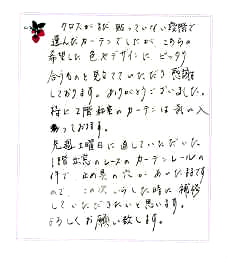 クロスがまだ貼っていない段階で
選んだカーテンでしたが、こちらの
希望した色やデザインに、ピッタリ
合うものを見立てていただき感謝
しております。ありがとうございました。
特に2階和室のカーテンは気に入
っております。
先週土曜日に直していただいた
1階出窓のレースのカーテンレールの
件で、止め具の穴があいたままです
ので、この次いらした時に補修
していただきたいと思います。
よろしくお願い致します。